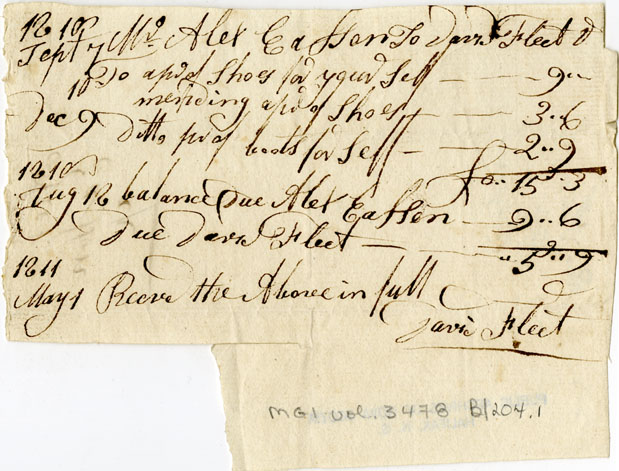 1810
Sept 7 Mr Alex Easson To David Fleet Dr
To a pr of Shoes for your Self — — 9 ..
10 mending a pr of Shoes — 3 .. 6
Dec 9 ditto pr of boots for Self — 2 .. 9
£0 .. 15 .. 3
1810
Aug 12 balance Due Alex Easson — 9 .. 6
Due David Fleet — .. 5 .. 9
1811
May 1 Receve the Above in full
David Fleet
MG1 vol. 3478 B/204.1